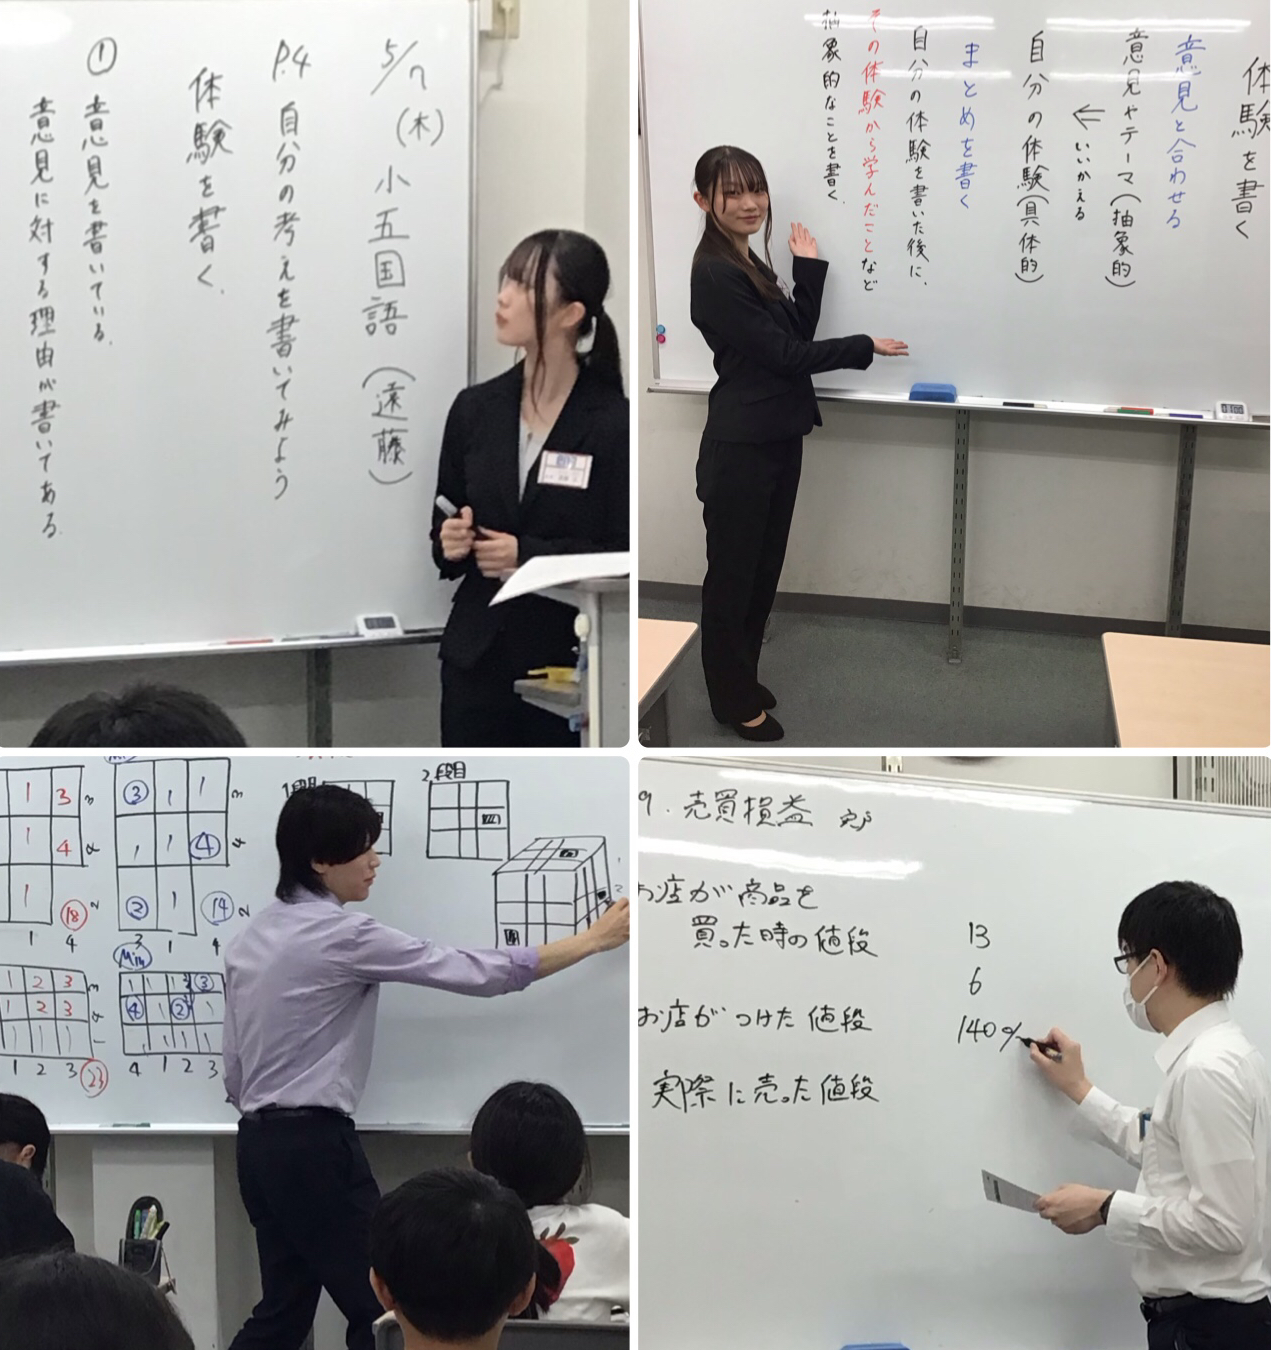 5/7(木) 小五国語 (遠藤)
P.4 自分の考えを書いてみよう
体験を書く.
① 意見を書いている.
意見に対する理由が書いてある.
体験を書く
意見と合わせる
意見やテーマ(抽象的)
← いいかえる
自分の体験(具体的)
まとめを書く
自分の体験を書いた後に、
その体験から学んだことなど
抽象的なことを書く.
1 3 3
1 4 4
1 18 2
1 4
3 1 1 3
1 1 4 4
2 1 14 2
3 1 4
1 2 3 3
1 2 3 4
1 1 1 1
1 2 3 23
Min
4 1 2 3
2段目
9. 売買損益
お店が商品を
買った時の値段
お店がつけた値段
実際に売った値段
13
6
140%